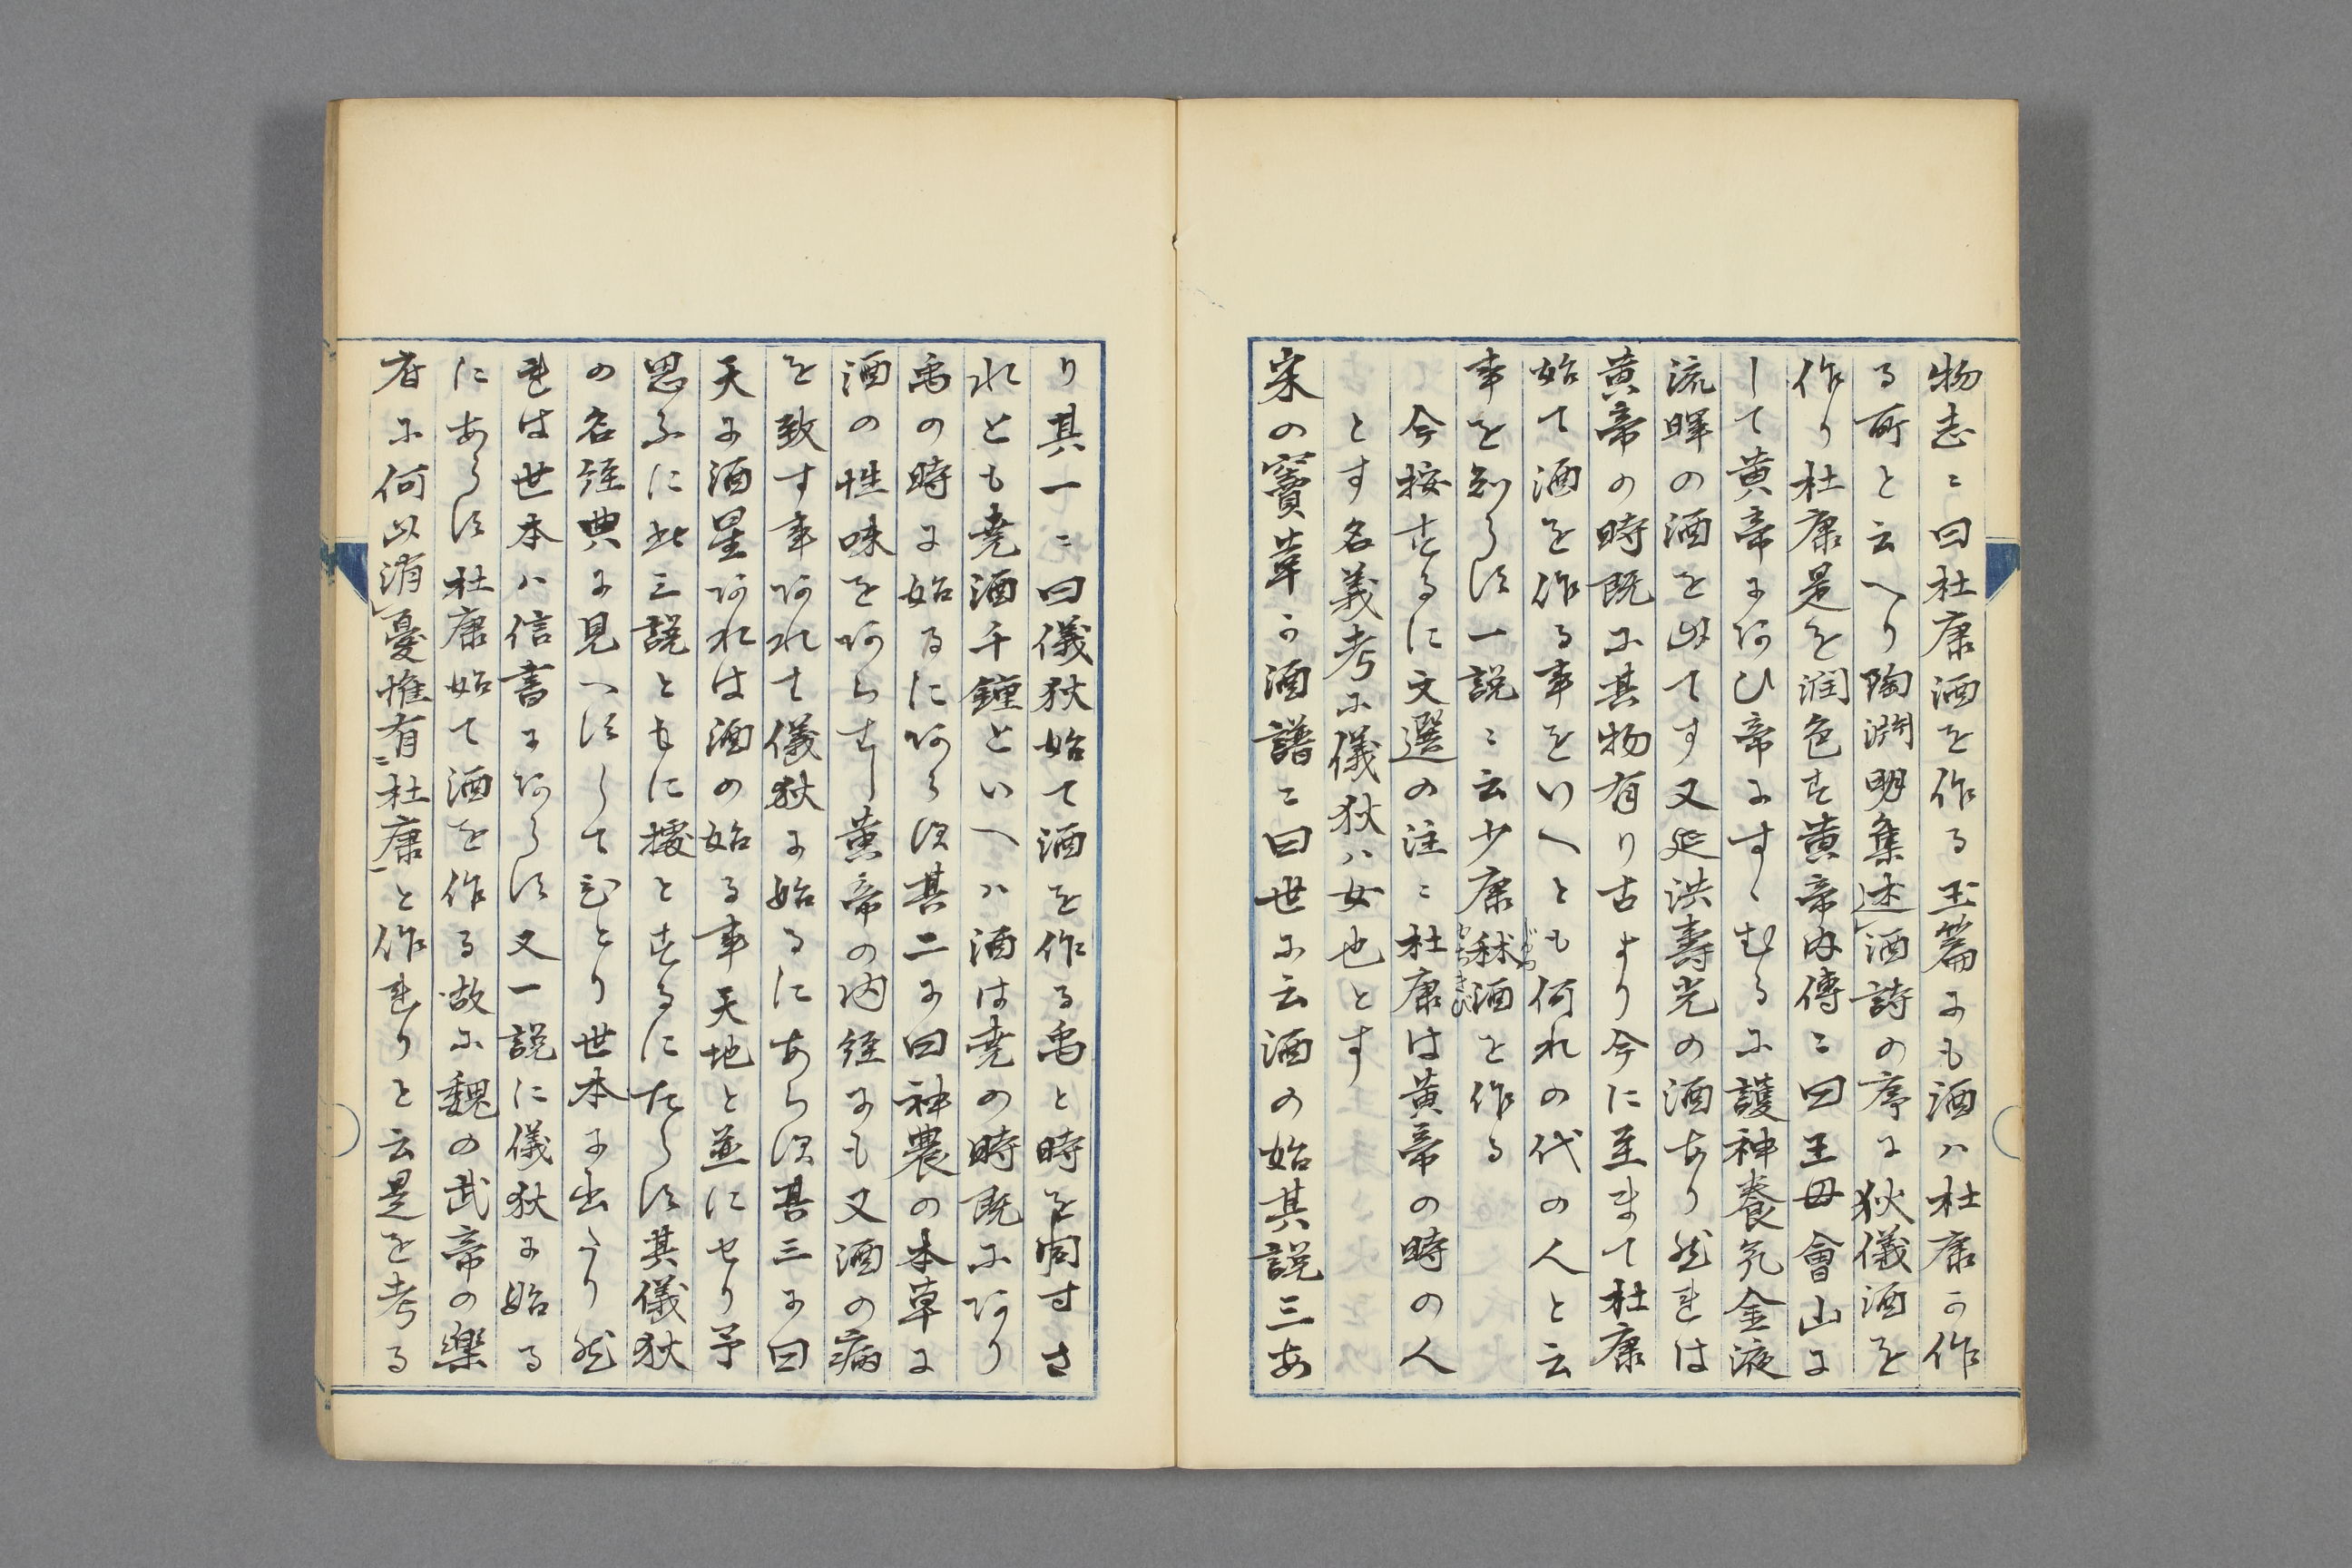 物志ニ曰杜康酒を作る玉篇にも酒ハ杜康か作
る所と云へり陶淵明集述酒詩の序に狄儀酒を
作り杜康是を潤色す黄帝内傳ニ曰王母會山に
して黄帝にあひ帝にすゝむるに護神養気金液
流暉の酒を以てす又延洪寿光の酒あり然れは
黄帝の時既に其物有り古より今に至まて杜康
始て酒を作る事をいへとも何れの代の人と云
事を知らす一説ニ云少康秫酒を作る
今按するに文選の注ニ杜康は黄帝の時の人
とす名義考に儀狄ハ女也とす
宋の竇革か酒譜ニ曰世に云酒の始其説三あ
り其一ニ曰儀狄始て酒を作る禹と時を同すさ
れとも堯酒千鍾といへハ酒は堯の時既にあり
禹の時に始るにあらす其二に曰神農の本草に
酒の性味をあらすし黄帝の内経にも又酒の病
を致す事あれて儀狄に始るにあらす其三に曰
天に酒星あれは酒の始る事天地と並にせり予
思ふに此三説ともに據とするにたらす其儀狄
の名経典に見へすしてひとり世本に出たり然
れは世本ハ信書にあらす又一説に儀狄に始る
にあらす杜康始て酒を作る故に魏の武帝の樂
府に何以消憂惟有杜康と作れりと云是を考る